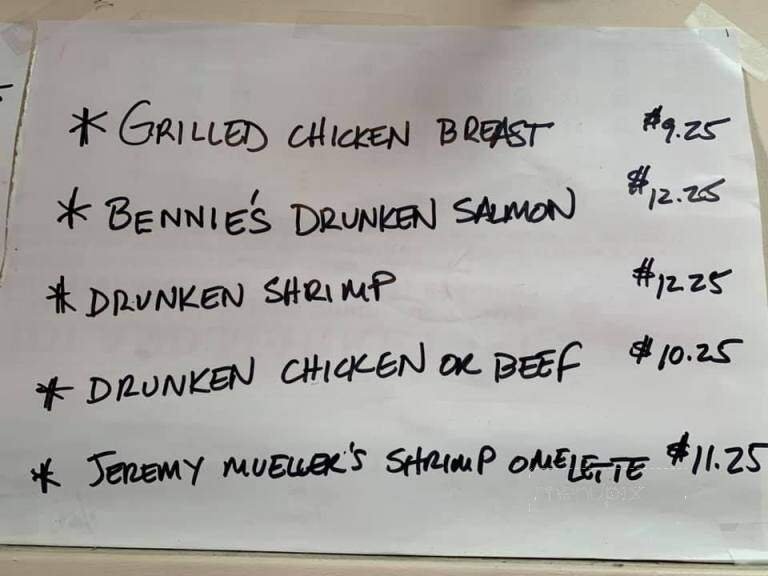 * GRILLED CHICKEN BREAST $9.25
* BENNIE'S DRUNKEN SALMON $12.25
* DRUNKEN SHRIMP $12.25
* DRUNKEN CHICKEN OR BEEF $10.25
* JEREMY MUELLER'S SHRIMP OMELETTE $11.25
menupix